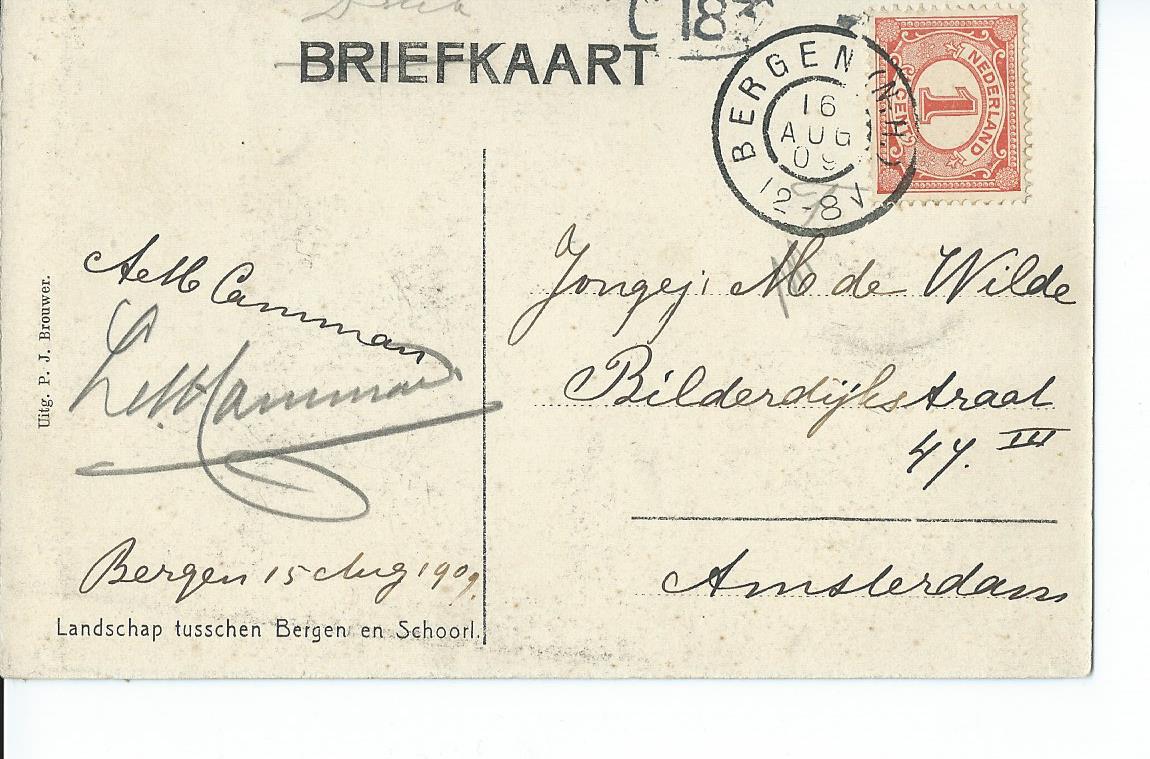 C 183
BRIEFKAART
BERGEN (N.H.)
16
AUG
09
12-8V
NEDERLAND
1
CENT
Uitg. P. J. Brouwer.
AeM Camman
Camman
Bergen 15 Aug 1909.
Landschap tusschen Bergen en Schoorl.
Jongej: M de Wilde
Bilderdijkstraat
47. III
Amsterdam